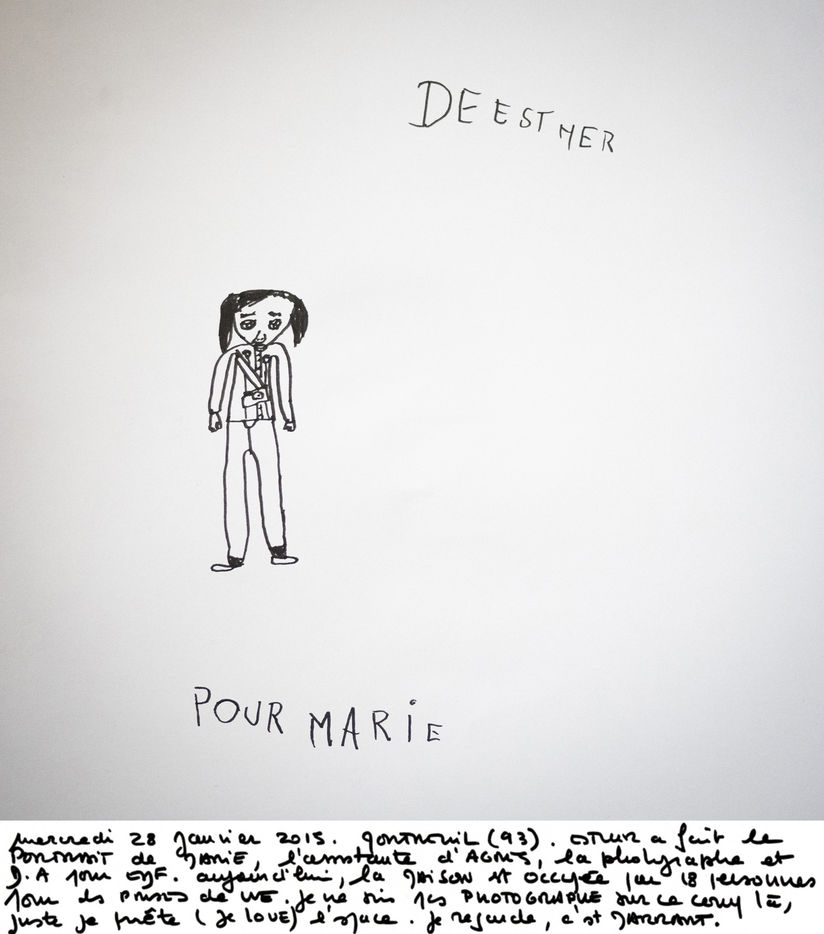 DE ESTHER
POUR MARiE
mercredi 28 Janvier 2015. MONTREUIL (93). ESTHER a fait le
PORTRAIT de MARIE, l'assistante d'AGNES, la photographe et
D.A pour. aujourd'hui, la MAISON est OCCUPée par 18 personnes
pour des PRISES de VUE. je ne suis pas PHOTOGRAPHE sur ce coup là,
juste je prête (je loue) l'espace. je regarde, c'est MARRANT.